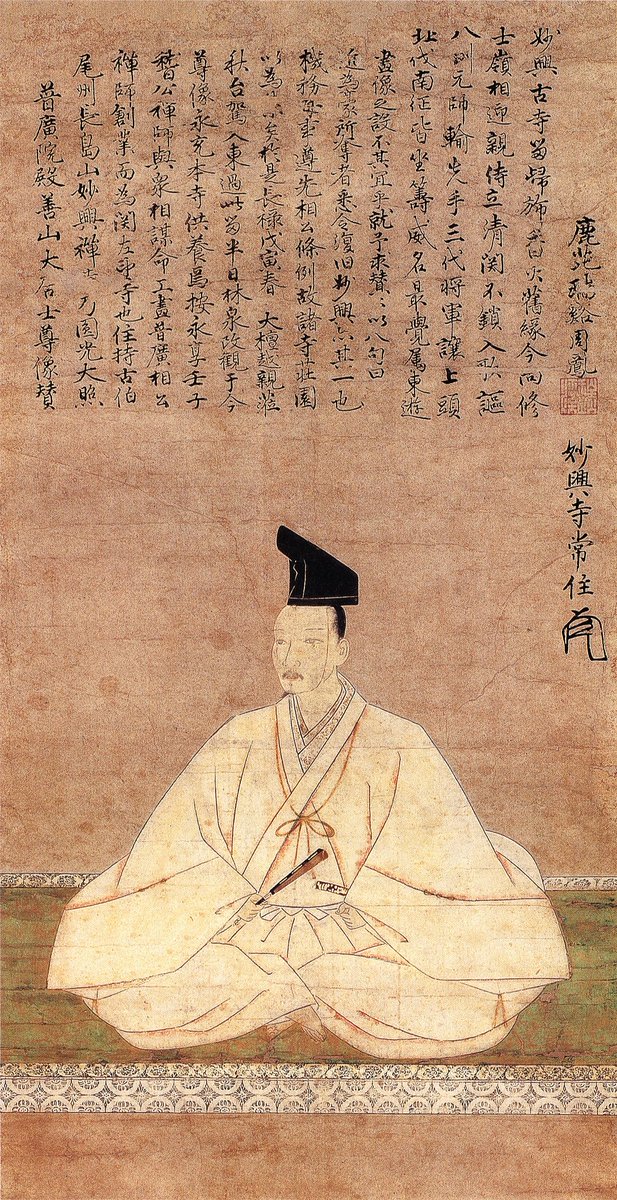 普廣院殿善山大居士尊像賛
尾州長島山妙興禪寺乃圓光大照
禪師創業而為関左望寺也住持古伯
稽公禪師與衆相謀命工畫普廣相公
尊像永充本寺供養焉按永享壬子
秋台駕入東過此留半日林泉改觀于今
以為矣於是長禄戊寅春大檀越親莅
機務重尊先相公條例故諸寺荘園
為豪所奪者悉令復旧妙興亦其一也
畫像之設不其宜乎就予求賛〻以八句曰
北伐南征皆坐籌威名最覺属東遊
八州元帥輸先手三代将軍讓上頭
士嶺相迎親侍立清関不鎖入歌謳
妙興古寺留帰旆香火舊緣今尚修
鹿苑瑞谿周鳳
妙興寺常住